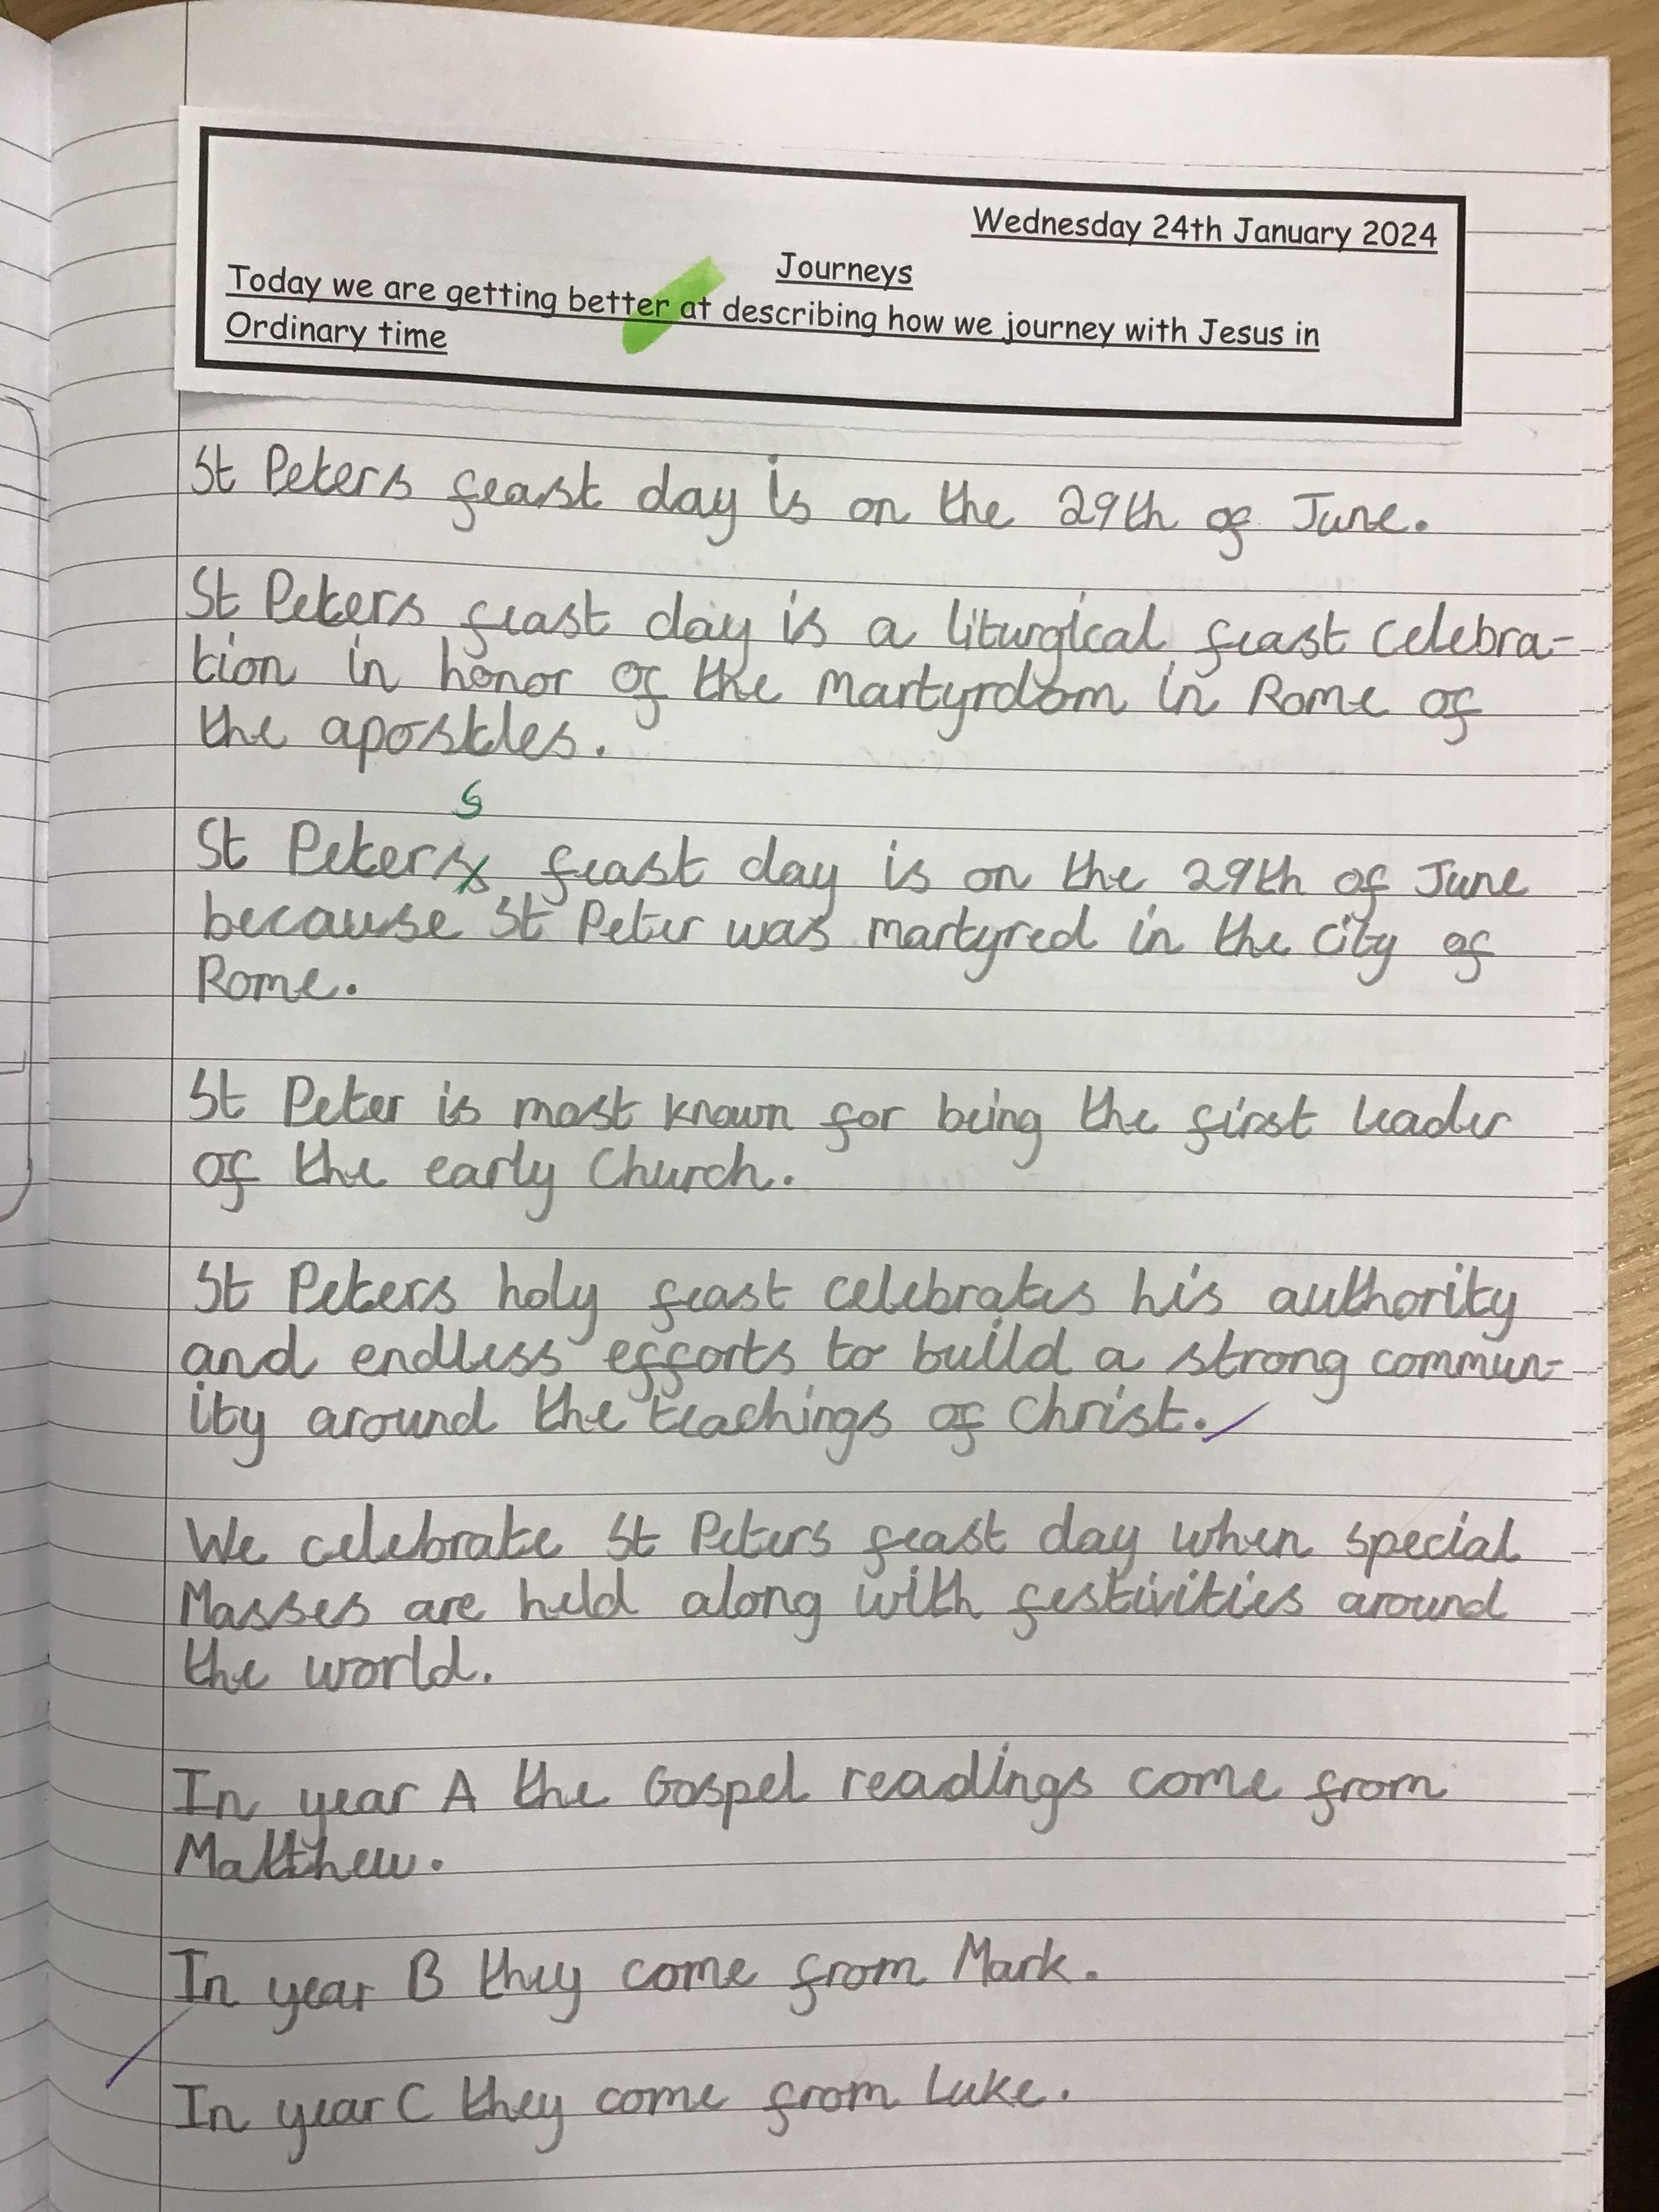 Wednesday 24th January 2024
Journeys
Today we are getting better at describing how we journey with Jesus in
Ordinary time
St Peters feast day is on the 29th of June.
St Peters feast day is a liturgical feast celebra-
tion in honor of the martyrdom in Rome of
the apostles.
s
St Peters feast day is on the 29th of June
because St Peter was martyred in the city of
Rome.
St Peter is most known for being the first leader
of the early Church.
St Peters holy feast celebrates his authority
and endless efforts to build a strong commun-
ity around the teachings of Christ.
We celebrate St Peters feast day when special
Masses are held along with festivities around
the world.
In year A the Gospel readings come from
Matthew.
In year B they come from Mark.
In year C they come from Luke.